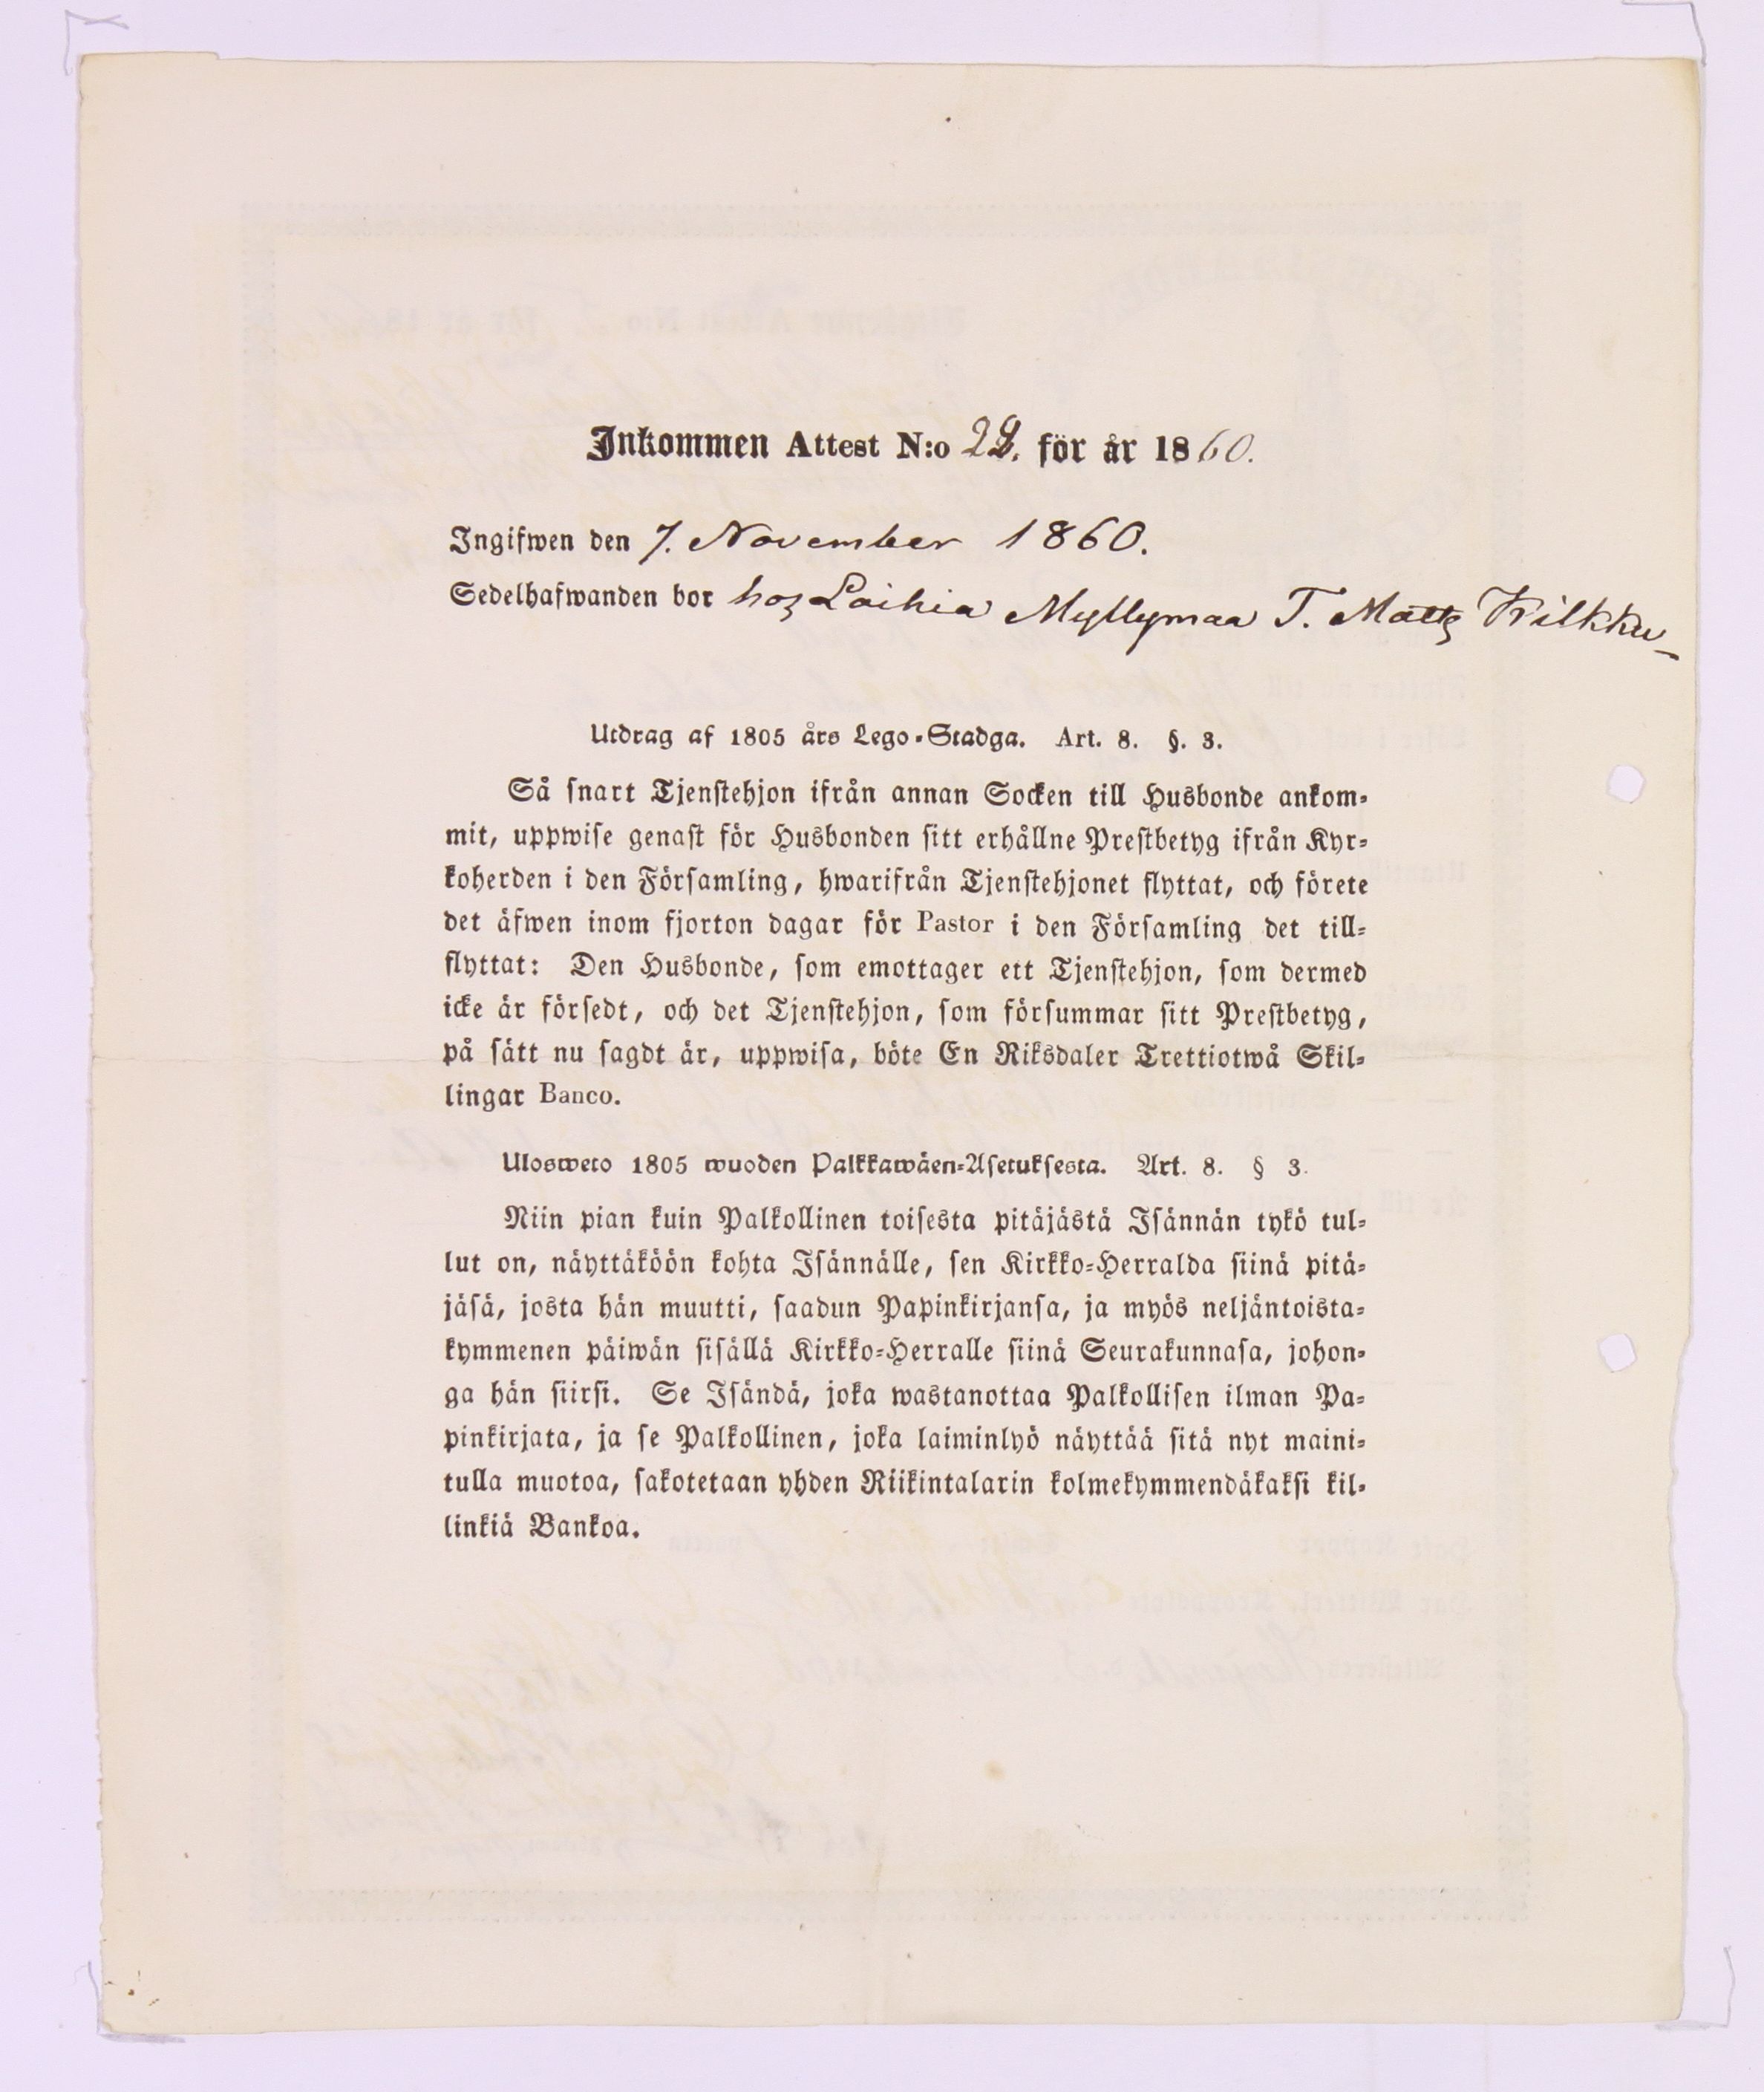 Inkommen Attest N:o 22. för år 1860.
Ingifwen den 7. November 1860.
Sedelhafwanden bor hos Laihia Myllymaa T. Matts Kilkku
Utdrag af 1805 års Lego-Stadga. Art. 8. §. 3.
Så snart Tjenstehjon ifrån annan Socken till Husbonde ankom-
mit, uppwise genast för Husbonden sitt erhållne Prestbetyg ifrån Kyr-
koherden i den Församling, hwarifrån Tjenstehjonet flyttat, och förete
det äfwen inom fjorton dagar för Pastor i den Församling det till-
flyttat: Den Husbonde, som emottager ett Tjenstehjon, som dermed
icke är försedt, och det Tjenstehjon, som försummar sitt Prestbetyg,
på sätt nu sagdt är, uppwisa, böte En Riksdaler Trettiotwå Skil-
lingar Banco.
Ulosweto 1805 wuoden Palkkawäen-Asetuksesta. Art. 8. § 3.
Niin pian kuin Palkollinen toisesta pitäjästä Isännän tykö tul-
lut on, näyttäköön kohta Isännälle, sen Kirkko-Herralda siinä pitä-
jäsä, josta hän muutti, saadun Papinkirjansa, ja myös neljäntoista-
kymmenen päiwän sisällä Kirkko-Herralle siinä Seurakunnasa, johon-
ga hän siirsi. Se Isändä, joka wastanottaa Palkollisen ilman Pa-
pinkirjata, ja se Palkollinen, joka laiminlyö näyttää sitä nyt maini-
tulla muotoa, sakotetaan yhden Riikintalarin kolmekymmendäkaksi kil-
linkiä Bankoa.